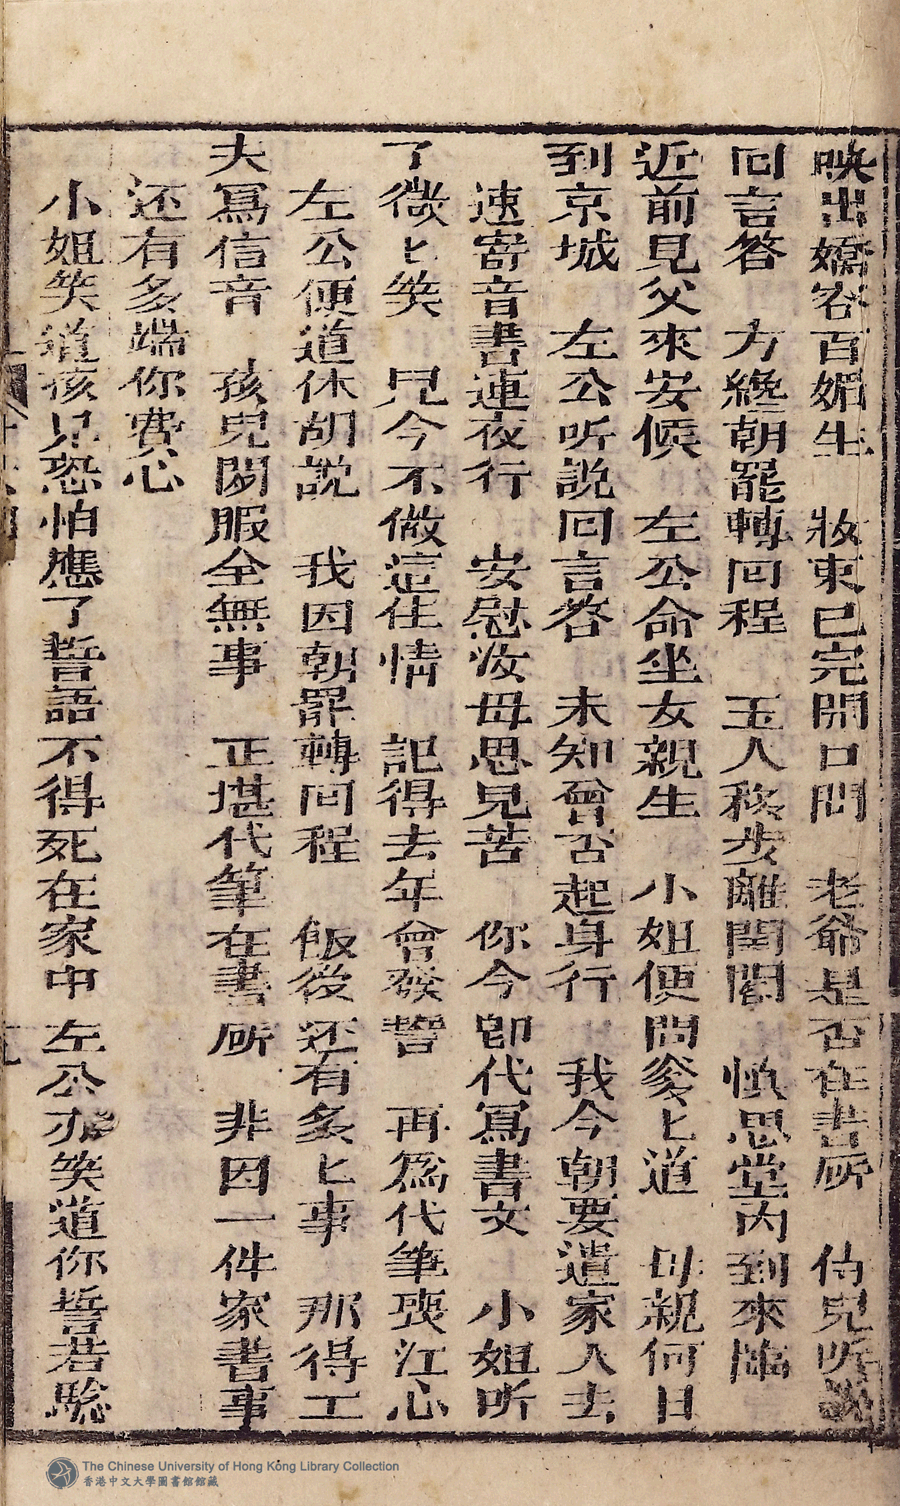 映出嬌容百媚生　妝束已完開口問　老爺是否在書所　侍兒听說
囘言答　方纔朝罷轉囘程　玉人移步離閨閣　慎思堂內到來臨
近前見父來安候　左公命坐女親生　小姐便問爹〻道　母親何日
到京城　左公听說囘言答　未知曾否起身行　我今朝要遣家人去
速寄音書連夜行　安慰汝母思兒苦　你今卽代寫書文　小姐听
了微〻笑　兒今不做這住情　記得去年曾發誓　再爲代筆喪江心
左公便道休胡說　我因朝罷轉囘程　飯後还有多〻事　那得工
夫寫信音　孩兒閑服全無事　正堪代筆在書所　非因一件家書事
还有多端你費心
小姐笑道孩兒恐怕應了誓語不得死在家中　左公亦笑道你誓若騐
The Chinese University of Hong Kong Library Collection
香港中文大學圖書館館藏